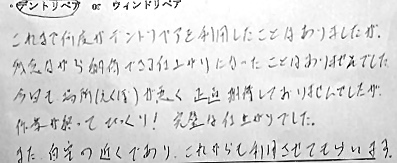 ・デントリペア or ウィンドリペア
これまで何度かデントリペアを利用したことはありましたが、
残念ながら納得できる仕上がりになったことはありませんでした
今回も場所(えくぼ)が悪く 正直 期待しておりませんでしたが、
作業が終って びっくり! 完璧な仕上がりでした。
また 自宅の近くであり、これからも利用させてもらいます。